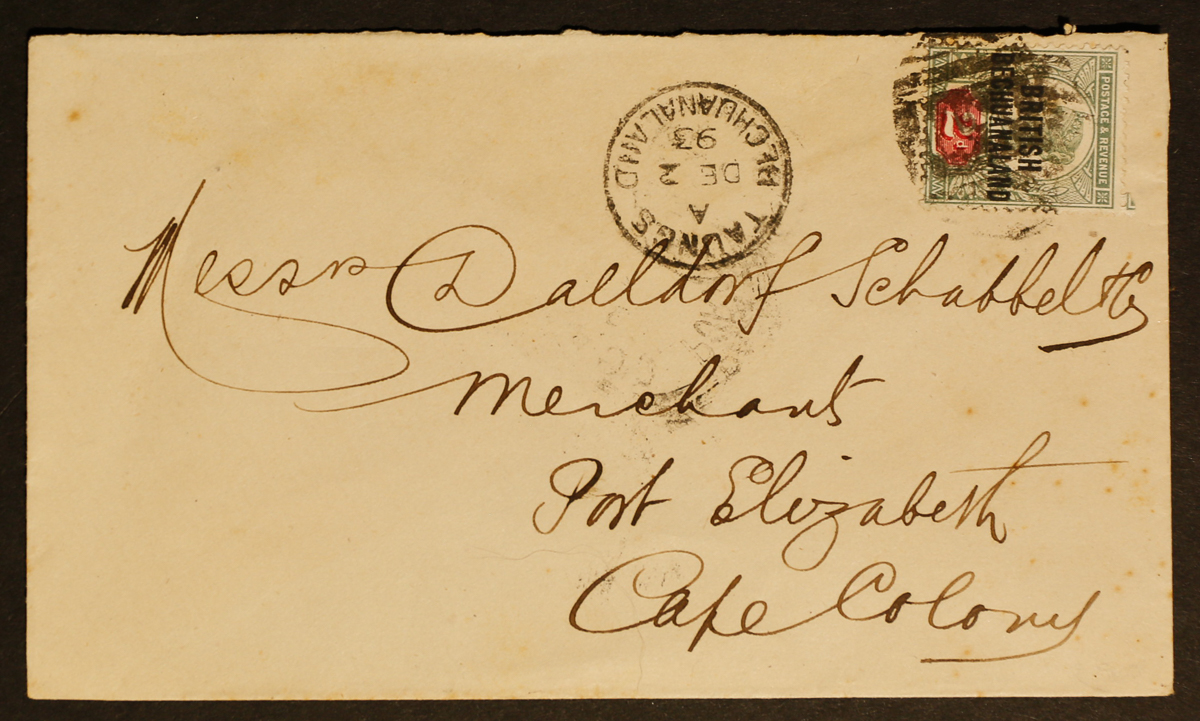 POSTAGE & REVENUE
BRITISH
BECHUANALAND
2
TAUNGS
A
DE 2
93
BECHUANALAND
Messrs Daelldorf Schabbel & Co
Merchants
Port Elizabeth
Cape Colony